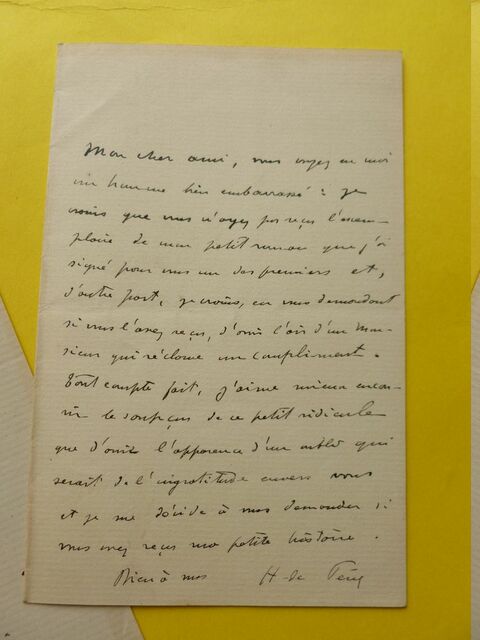 Mon cher ami, vous voyez en moi
un homme bien embarrassé : je
crois que vous n'avez pas reçu l'exem-
plaire de mon petit roman que j'ai
signé pour vous un des premiers et,
d'autre part, je crains, en vous demandant
si vous l'avez reçu, d'avoir l'air d'un mon-
sieur qui réclame un compliment.
Tout compte fait, j'aime mieux encou-
rir le soupçon de ce petit ridicule
que d'avoir l'apparence d'un oubli qui
serait de l'ingratitude envers vous
et je me décide à vous demander si
vous avez reçu ma petite histoire.
Bien à vous H de